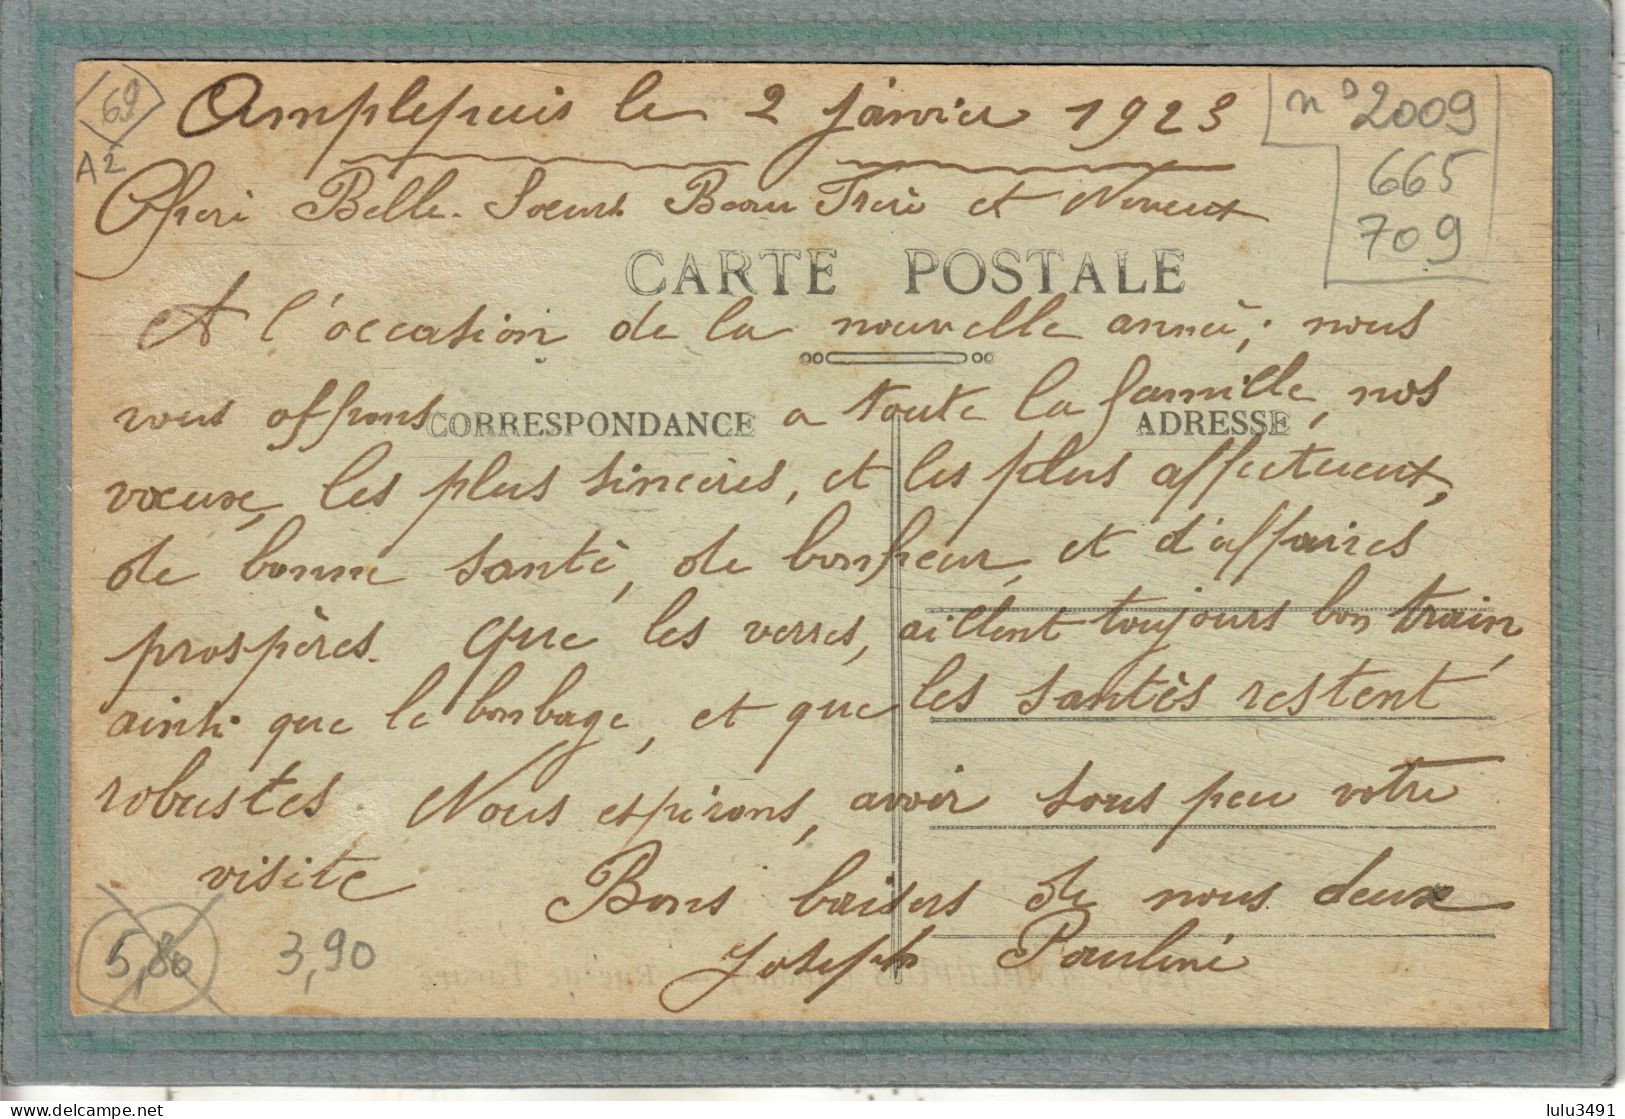 69
A2
Amplepuis le 2 janvier 1923
n° 2009
665
709
Cheri Belle-Soeurs Beau Frère et Neveux
CARTE POSTALE
A l'occasion de la nouvelle année; nous
vous offrons a toute la famille, nos
CORRESPONDANCE ADRESSE
voeux, les plus sincères, et les plus affectueux,
de bonne santé, de bonheur, et d'affaires
prospères. que les verres, aillent toujours bon train,
ainsi que le bonbage, et que les santés restent
robustes. Nous espérons, avoir sous peu votre
visite
Bons baisers de nous deux
Joseph Pauline
5,80 3,90
lulu3491